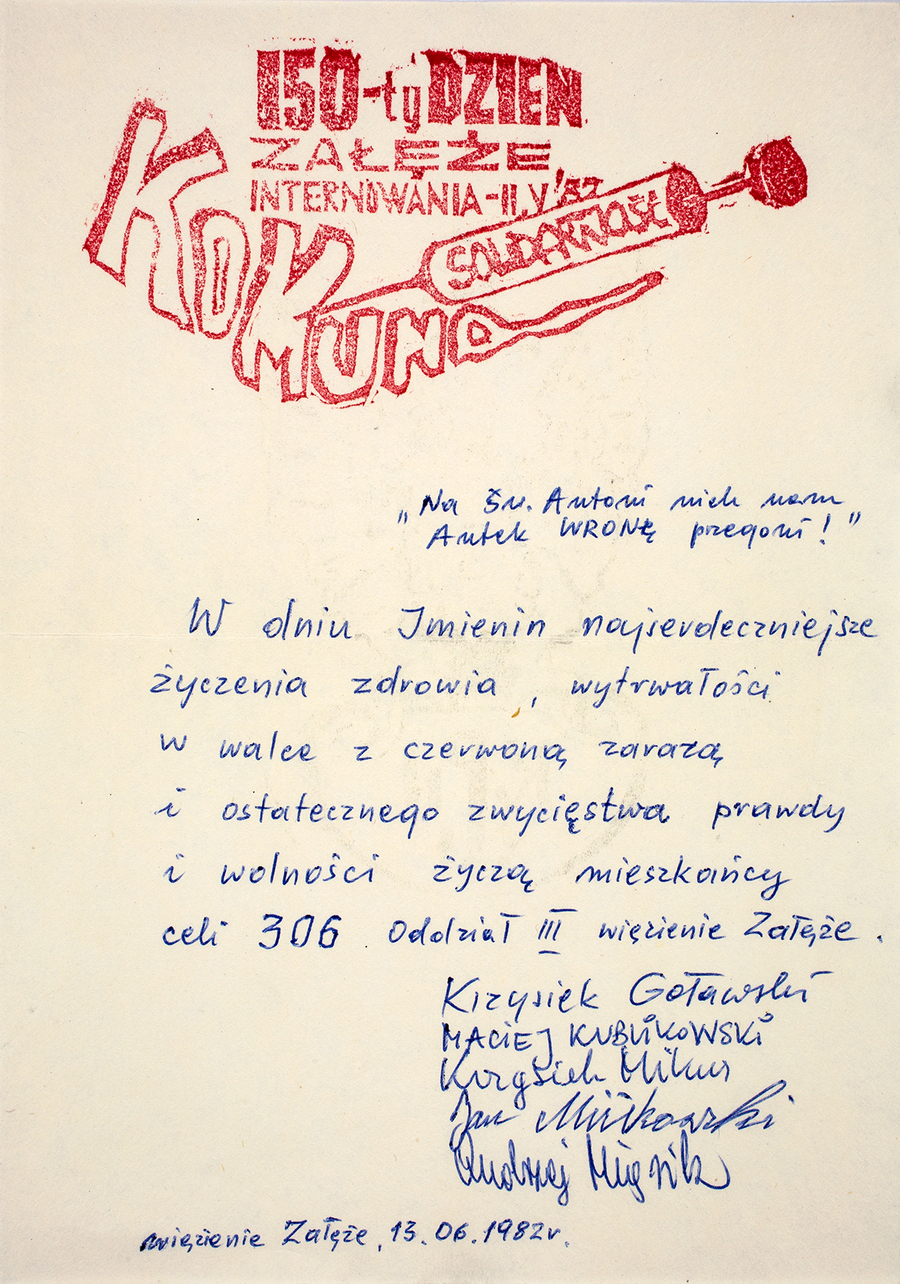 150-ty DZIEN
ZAŁĘŻE
INTERNOWANIA-11.V'82
SOLIDARNOŚĆ
KOMUNA
„Na Św. Antoni niech nam
Antek WRONĘ przegoni!"
W dniu Imienin najserdeczniejsze
życzenia zdrowia, wytrwałości
w walce z czerwoną zarazą
i ostatecznego zwycięstwa prawdy
i wolności życzą mieszkańcy
celi 306 Oddział III więzienie Załęże.
Krzysiek Gotowski
MACIEJ KUBLIKOWSKI
Krzysiek Mikus
Jan
Andrzej
więzienie Załęże, 13.06.1982r.